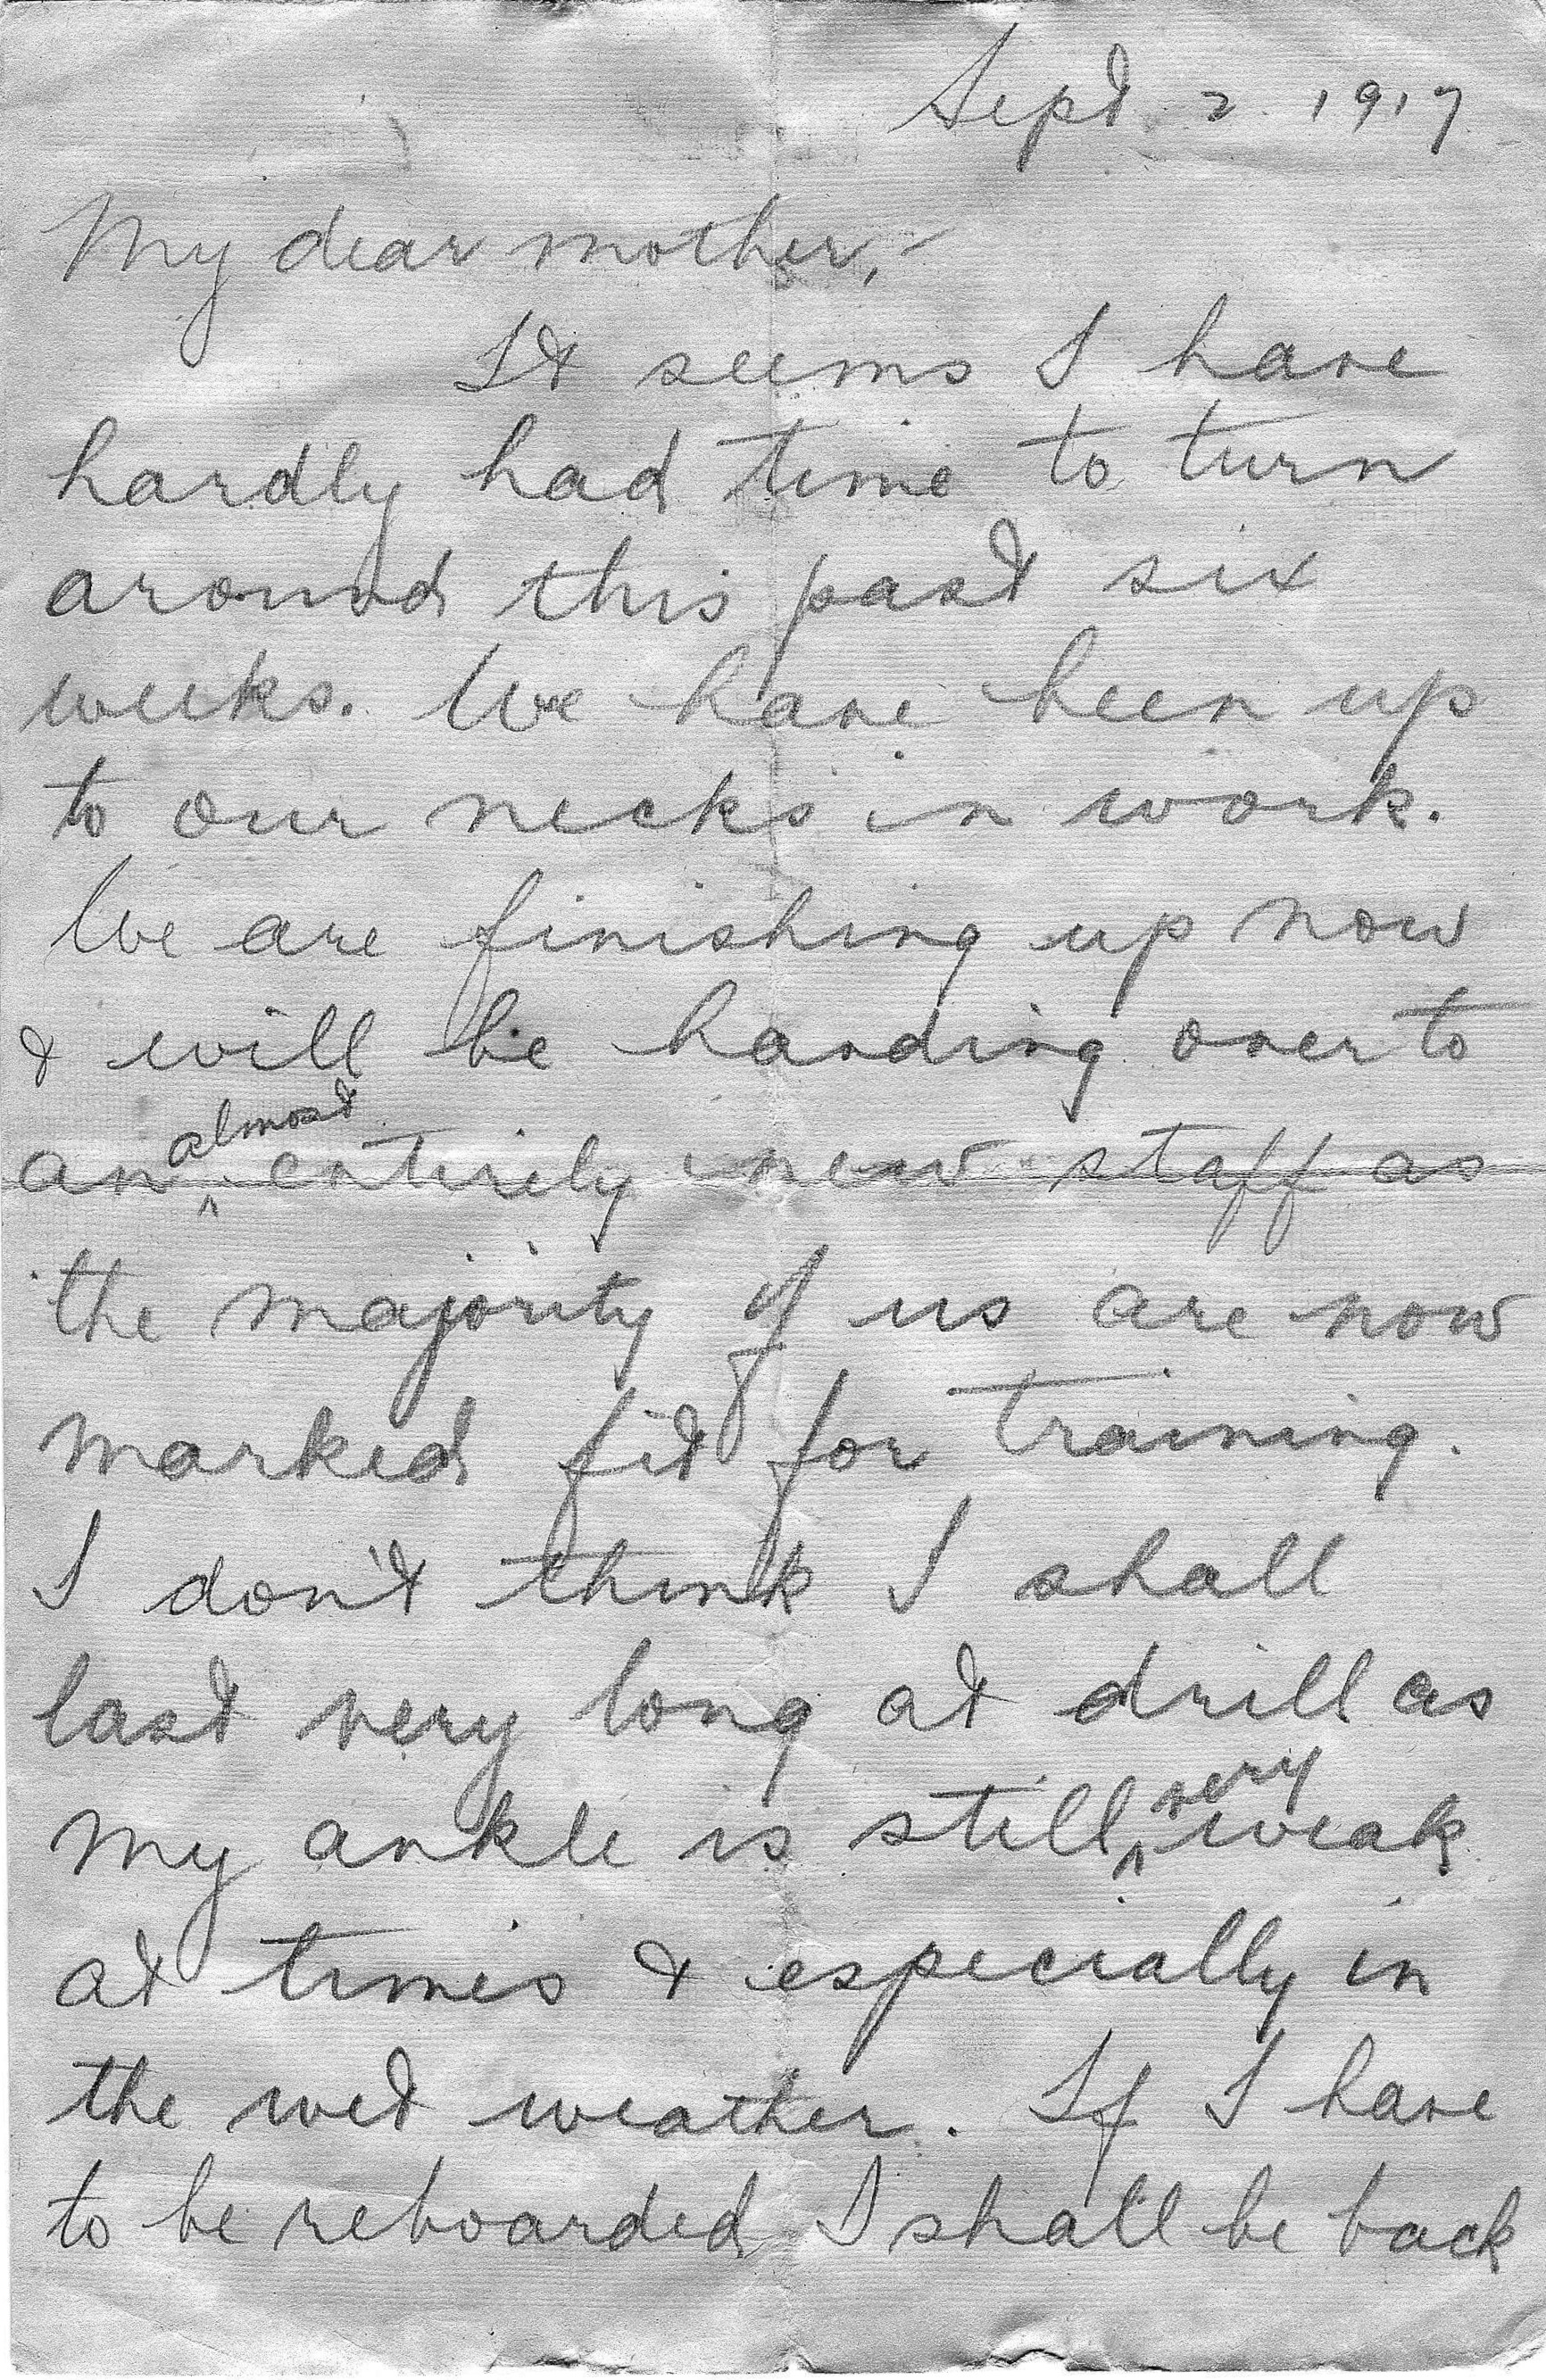 Sept 2 1917
My dear mother,-
It seems I have
hardly had time to turn
around this past six
weeks. We have been up
to our necks in work.
We are finishing up now
& will be handing over to
an almost entirely new staff as
the majority of us are now
marked fit for training.
I don't think I shall
last very long at drill as
my ankle is still very weak
at times & especially in
the wet weather. If I have
to be reboarded I shall be back